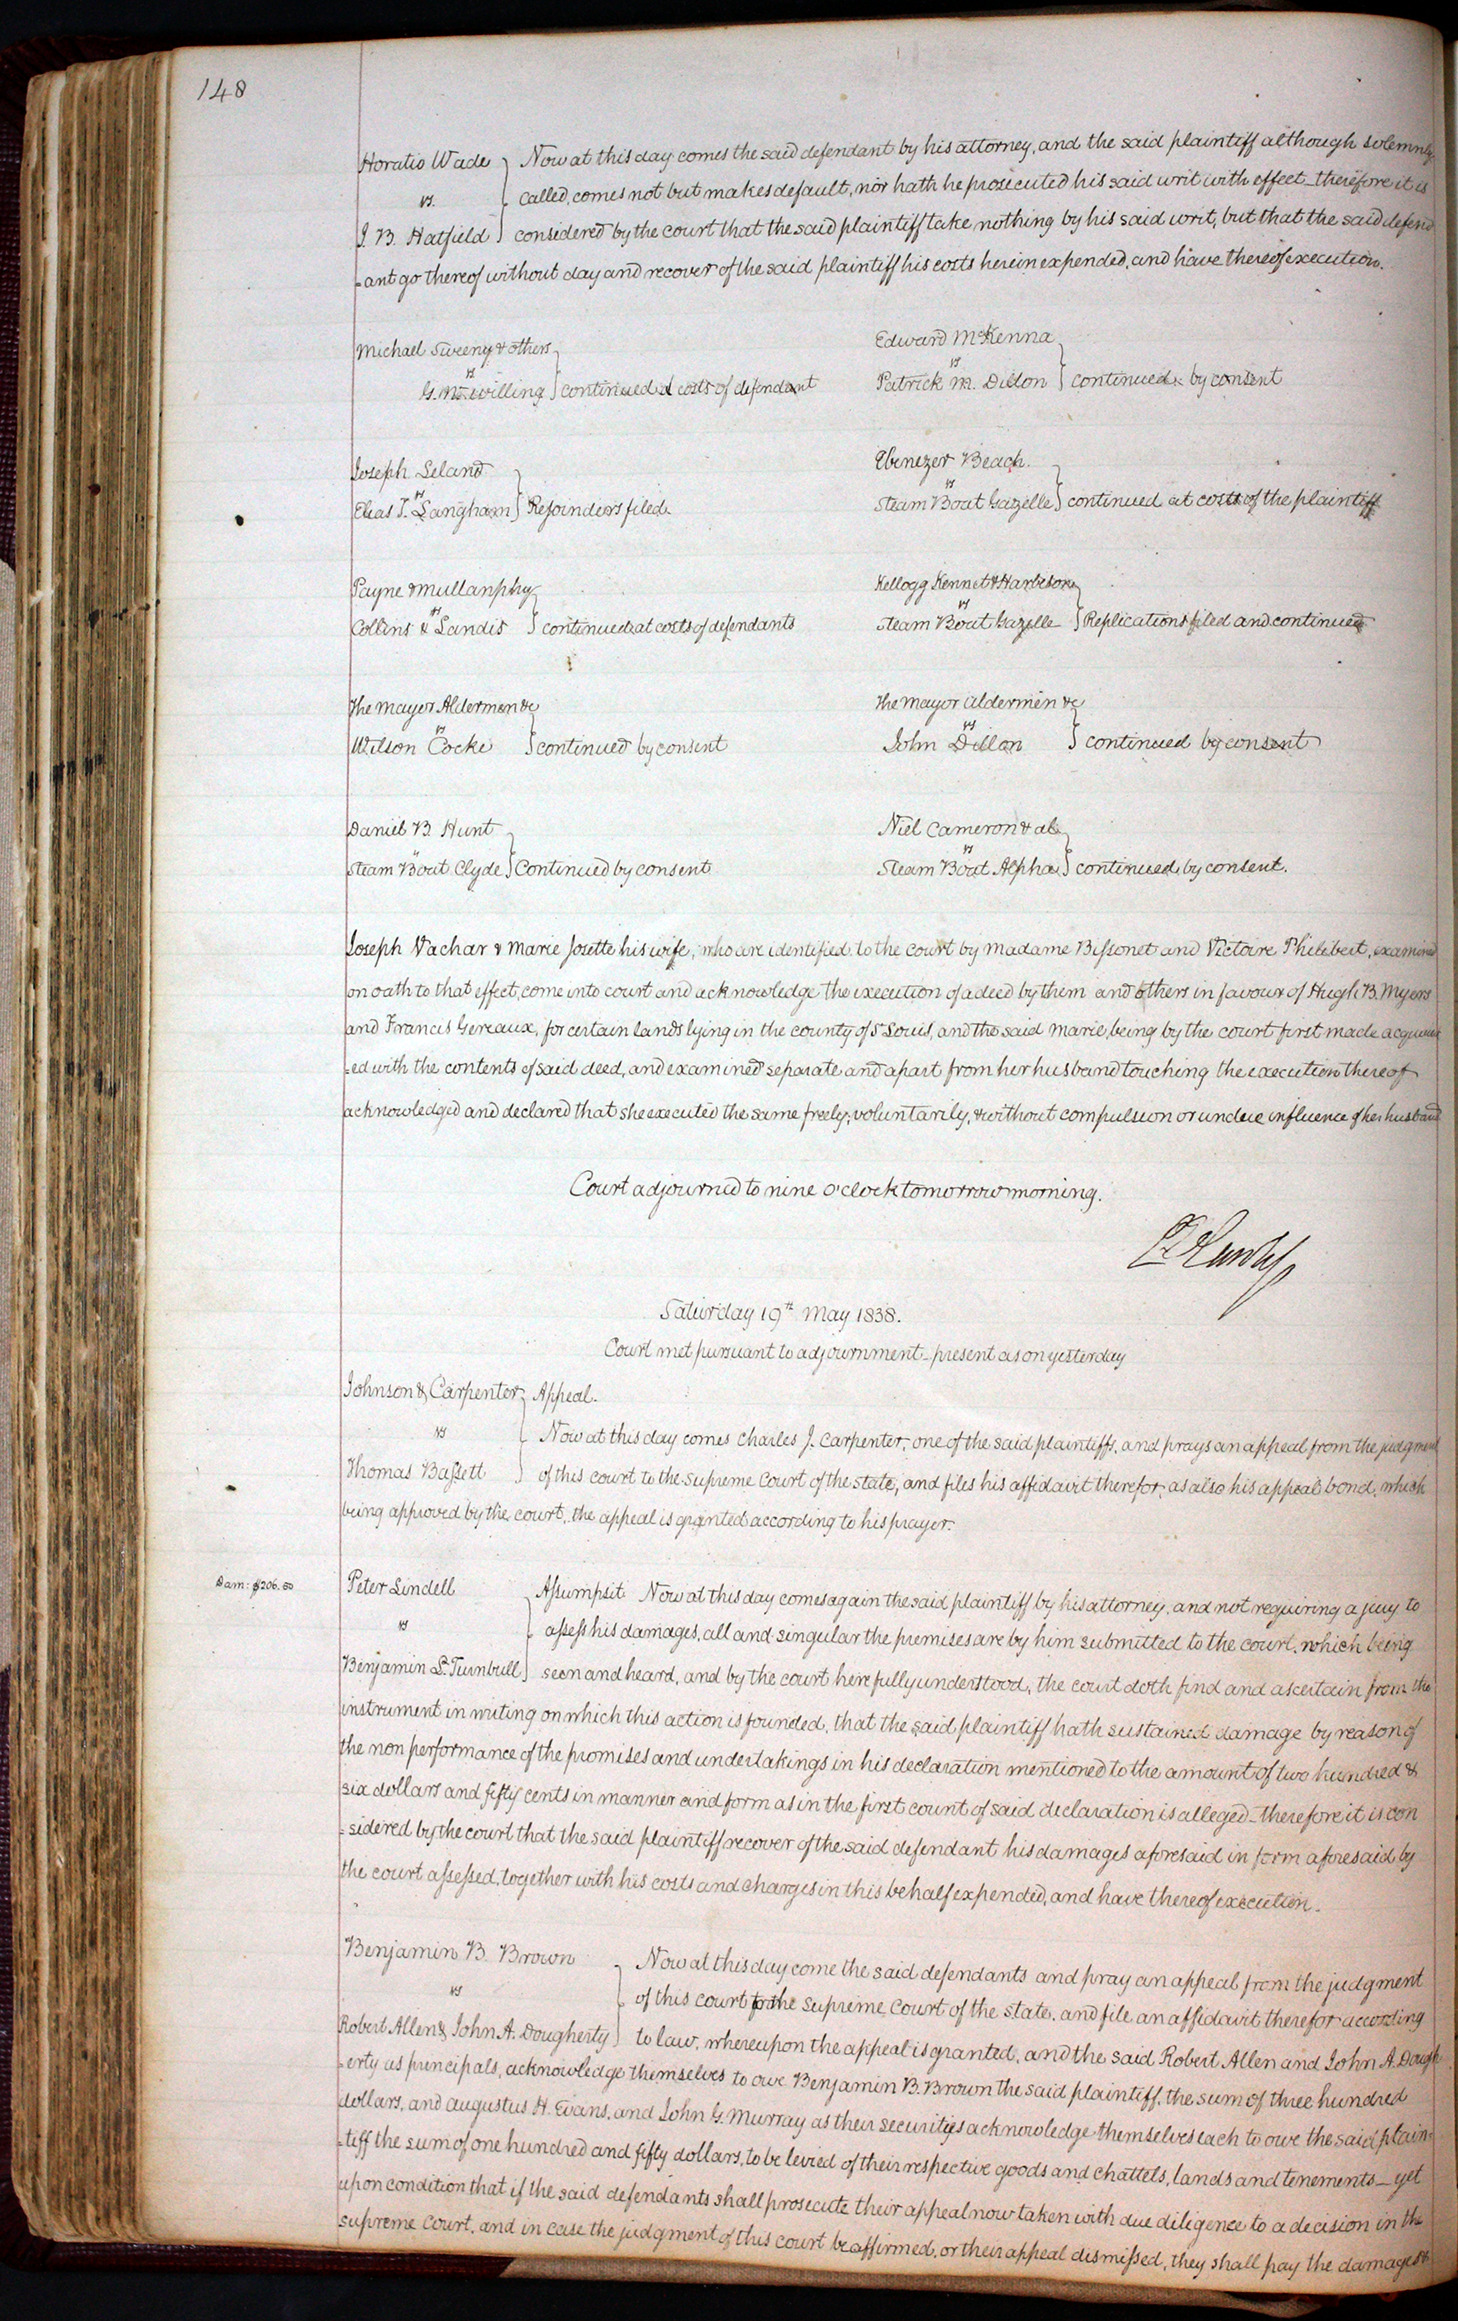 148
Horatio Wade } Now at this day comes the said defendant by his attorney, and the said plaintiff although solemnly
vs. called, comes not but makes default, nor hath he prosecuted his said writ with effect - therefore it is
J. B. Hatfield } considered by the court that the said plaintiff take nothing by his said writ, but that the said defend
=ant go thereof without day and recover of the said plaintiff his costs herein expended, and have thereof execution.
Michael Sweeny & others
vs
G. M. Willing } continued at costs of defendant
Edward McKenna
vs
Patrick M. Dillon } continued by consent
Joseph Leland
vs
Elias T. Langham } Rejoinders filed
Ebenezer Beach.
vs
Steam Boat Gazelle } continued at costs of the plaintiff
Payne & Mullanphy
vs
Collins & Landis } continued at costs of defendants
Kellogg Kennet & Harbeson
vs
Steam Boat Gazelle } Replications filed and continued
The Mayor Aldermen &c
vs
Wilson Cocke } continued by consent
The Mayor Aldermen &c
vs
John Dillon } continued by consent
Daniel B. Hunt
vs
Steam Boat Clyde } Continued by consent
Niel Cameron & al
vs
Steam Boat Alpha } continued by consent.
Joseph Vachar & Marie Josette his wife, who are identified to the court by Madame Bissonet and Victoire Philibert, examined
on oath to that effect, come into court and acknowledge the execution of a deed by them and others in favour of Hugh B. Myers
and Francis Gereaux, for certain lands lying in the county of St Louis, and the said Marie, being by the court first made acquaint
=ed with the contents of said deed, and examined separate and apart from her husband touching the execution thereof
acknowledged and declared that she executed the same freely, voluntarily, & without compulsion or undue influence of her husband
Court adjourned to nine o'clock tomorrow morning.
Saturday 19th May 1838.
Court met pursuant to adjournment - present as on yesterday
Johnson & Carpenter } Appeal.
vs Now at this day comes Charles J. Carpenter, one of the said plaintiffs, and prays an appeal from the judgment
Thomas Bassett } of this court to the Supreme Court of the state, and files his affidavit therefor, as also his appeal bond, which
being approved by the court, the appeal is granted according to his prayer.
Dam: $206.50
Peter Lindell } Assumpsit. Now at this day comes again the said plaintiff by his attorney, and not requiring a jury to
vs assess his damages, all and singular the premises are by him submitted to the court, which being
Benjamin L. Turnbull } seen and heard, and by the court here fully understood, the court doth find and ascertain from the
instrument in writing on which this action is founded, that the said plaintiff hath sustained damage by reason of
the non performance of the promises and undertakings in his declaration mentioned to the amount of two hundred &
six dollars and fifty cents in manner and form as in the first count of said declaration is alleged - therefore it is con
=sidered by the court that the said plaintiff recover of the said defendant his damages aforesaid in form aforesaid by
the court assessed, together with his costs and charges in this behalf expended, and have thereof execution.
Benjamin B. Brown } Now at this day come the said defendants and pray an appeal from the judgment
vs of this court to the Supreme Court of the state, and file an affidavit therefor according
Robert Allen & John A. Dougherty } to law, whereupon the appeal is granted, and the said Robert Allen and John A. Dough
=erty as principals, acknowledge themselves to owe Benjamin B. Brown the said plaintiff, the sum of three hundred
dollars, and Augustus H. Evans, and John G. Murray as their securities acknowledge themselves each to owe the said plain=
=tiff the sum of one hundred and fifty dollars, to be levied of their respective goods and chattels, lands and tenements - yet
upon condition that if the said defendants shall prosecute their appeal now taken with due diligence to a decision in the
supreme court, and in case the judgment of this court be affirmed, or their appeal dismissed, they shall pay the damages &